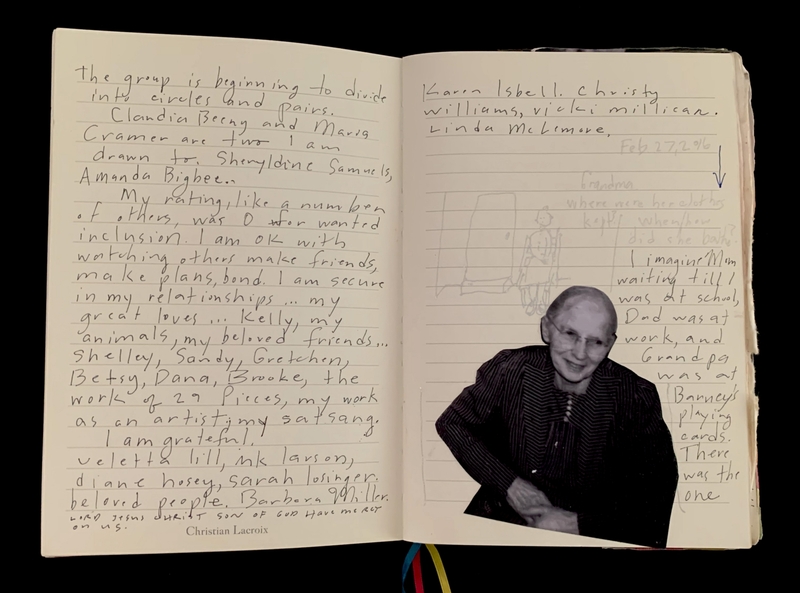 The group is beginning to divide
into circles and pairs.
Claudia Beeny and Maria
Cramer are two I am
drawn to. Sheryldine Samuels,
Amanda Bigbee..
My rating, like a number
of others, was 0 for wanted
inclusion. I am OK with
watching others make friends,
make plans, bond. I am secure
in my relationships ... my
great loves ... Kelly, my
animals, my beloved friends...
Shelley, Sandy, Gretchen,
Betsy, Dana, Brooke, the
work of 29 Pieces, my work
as an artist, my satsang.
I am grateful.
veletta lill, ink larson,
diane hosey, sarah losinger.
beloved people. Barbara Miller.
LORD JESUS CHRIST SON OF GOD HAVE MERCY
on us.
Christian Lacroix
Karen Isbell. Christy
Williams, vicki millican.
Linda McLemore.
Feb 27, 2016
Grandma
where were her clothes
kept? when/how
did she bathe?
I imagine Mom
waiting till I
was at school,
Dad was at
work, and
Grandpa
was at
Barney's
playing
cards.
There
was the
one